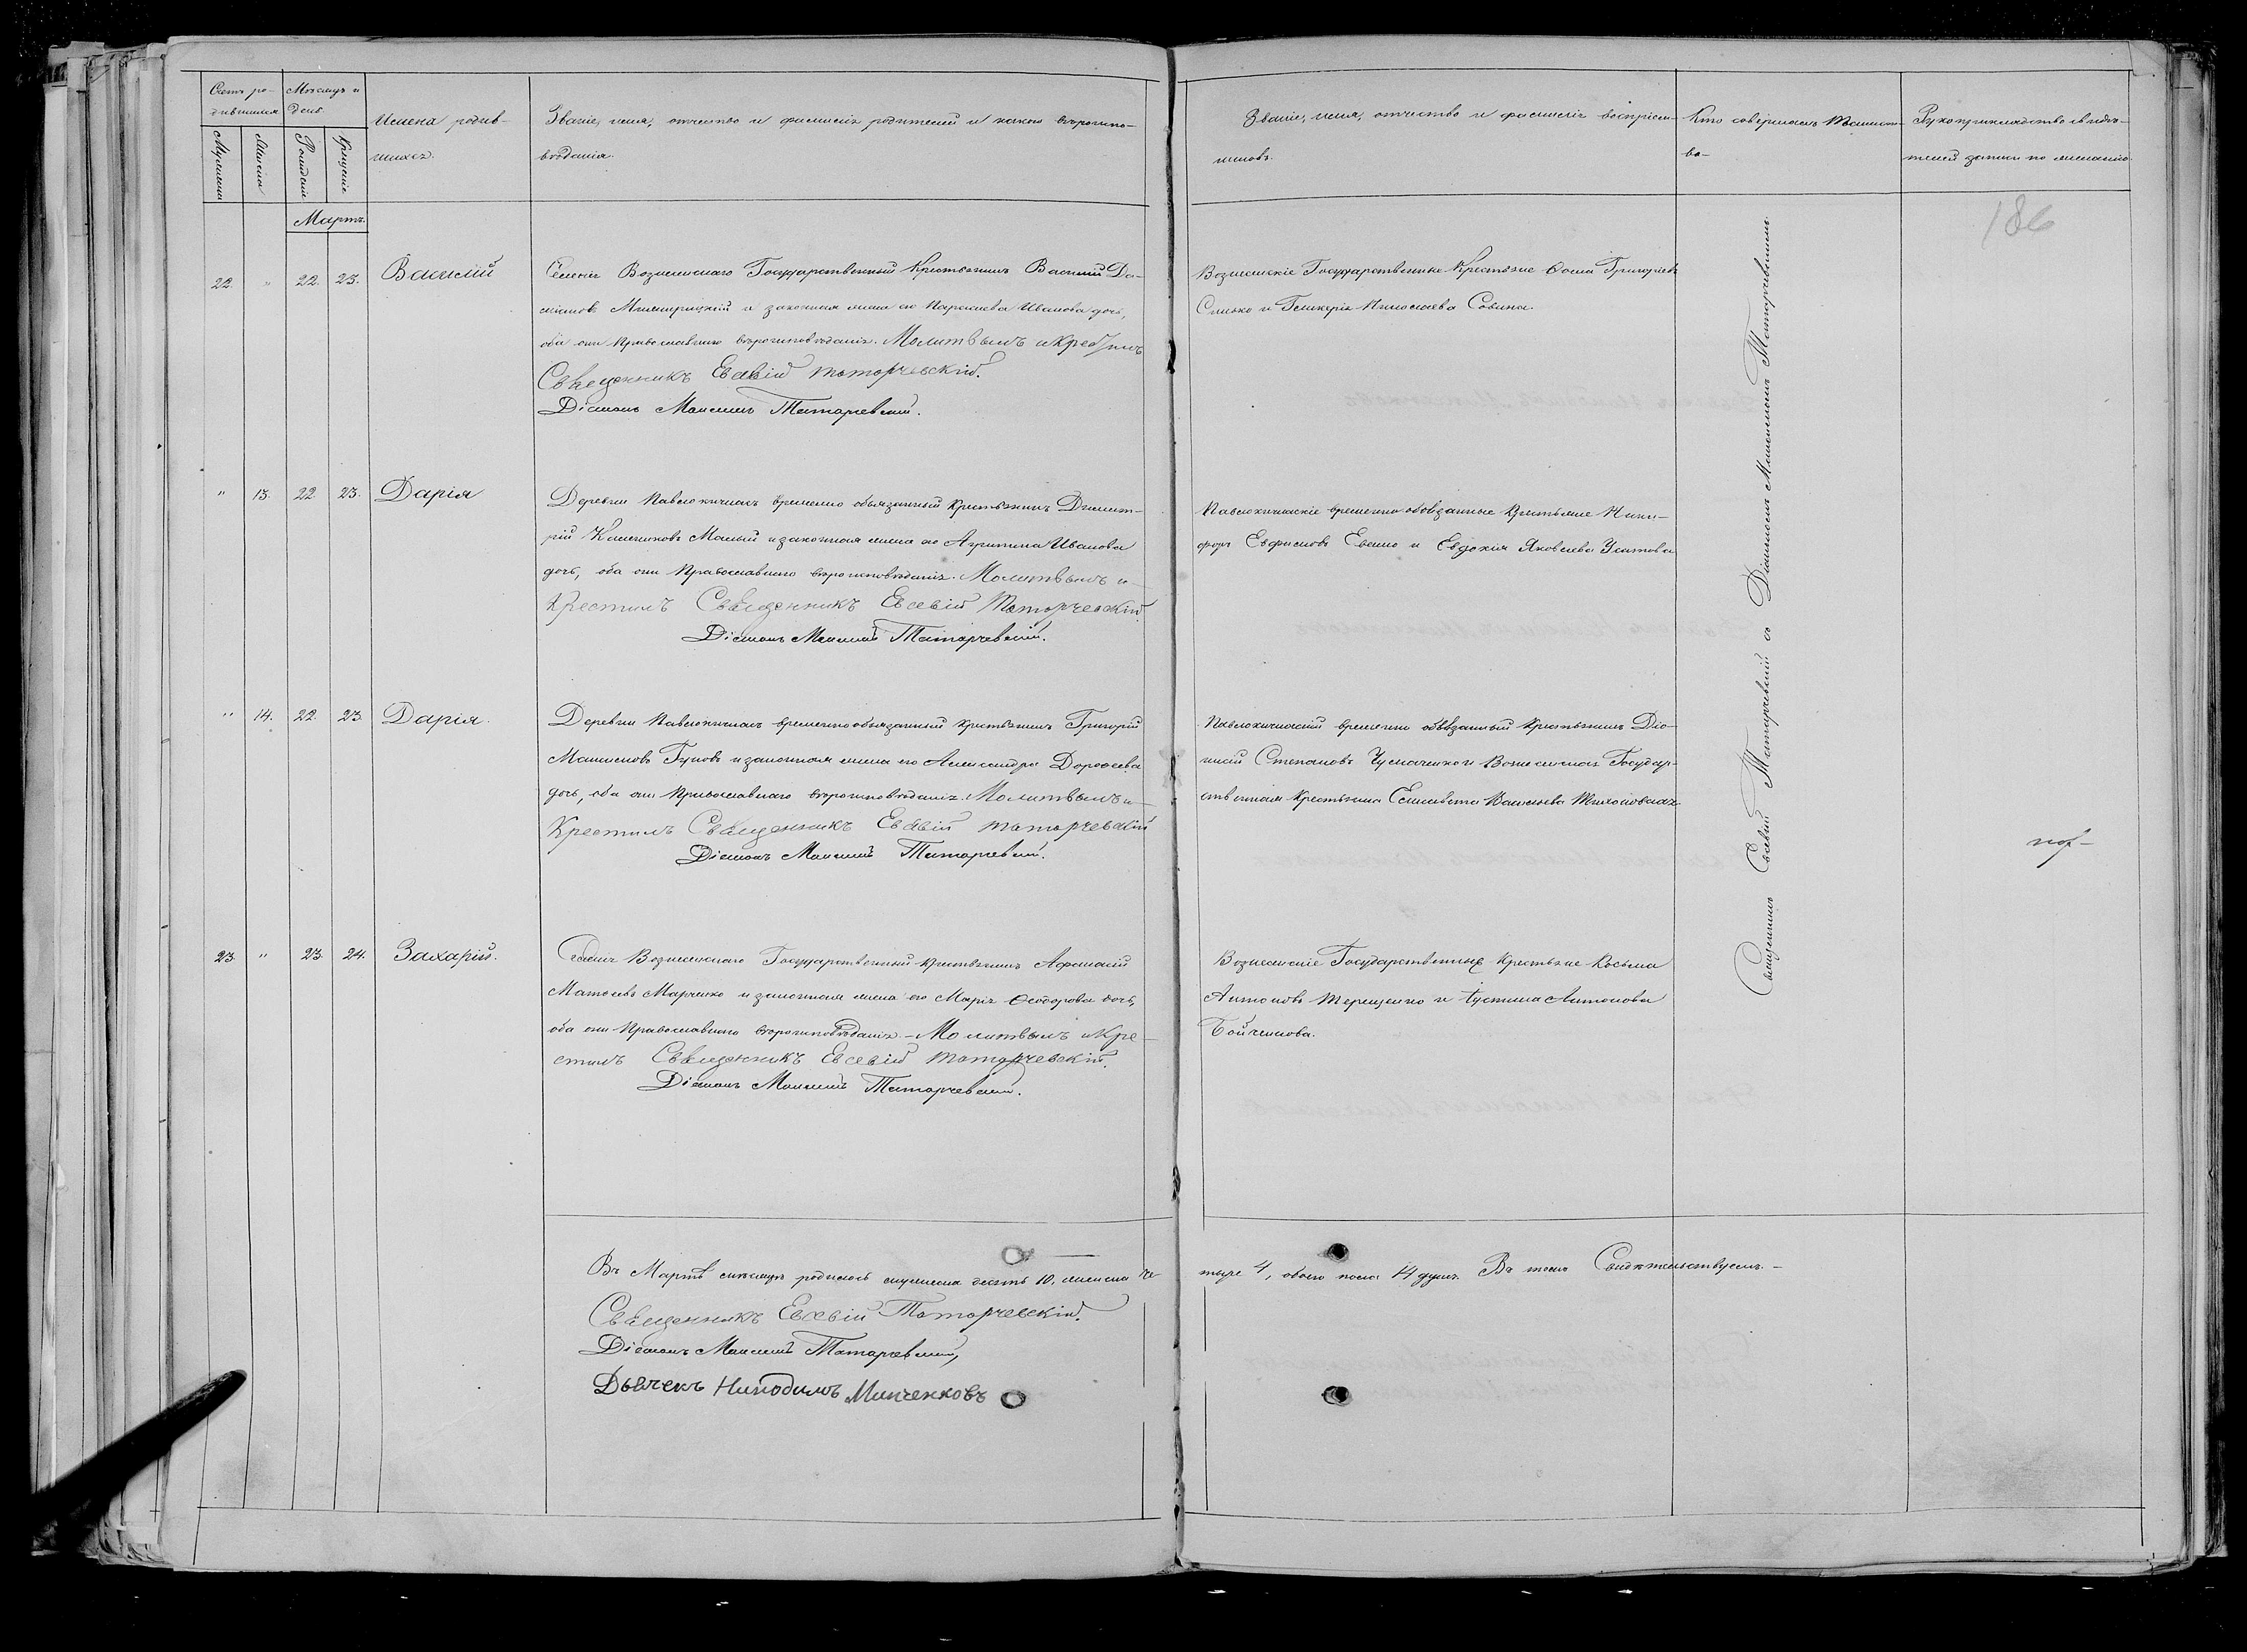 Счетъ ро-
дившихся
Мѣсяцъ и
день
Мужеска
Женска
Рожденіе
Крещеніе
Имена родив-
шихся.
Званіе, имя, отчество и фамилія родителей и какого вѣроиспо-
вѣданія.
Званіе, имя, отчество и фамилія воспріем-
никовъ.
Кто совершалъ таинст-
во
Рукоприкладство свидѣ-
телей записи по желанію.
186
Мартъ.
22. " 22. 23. Василій
Селенія Вознесенскаго Государственный крестьянинъ Василій Да-
и законная жена его Параскева Иванова дочь,
оба они Православнаго вѣроисповѣданія. Молитвылъ и Крестилъ
Священникъ Евсевій Татарчевскій.
Діаконъ Максимъ Татарчевскій.
Вознесенскіе Государственные Крестьяне Ѳома Григорьевъ
и Гликерія Николаева Савина.
" 13. 22. 23. Дарія
Деревни временно обязанный крестьянинъ Димит-
рій Малый и законная жена его Агрипина Иванова
дочь, оба они Православнаго вѣроисповѣданія. Молитвылъ и
Крестилъ Священникъ Евсевій Татарчевскій.
Діаконъ Максимъ Татарчевскій.
временно обязанные Крестьяне Ники-
форъ Евфимовъ и Евдокія Яковлева
" 14. 22. 23. Дарія.
Деревни временно обязанный крестьянинъ Григорій
Максимовъ и законная жена его Александра Дорофеева
дочь, оба они Православнаго вѣроисповѣданія. Молитвылъ и
Крестилъ Священникъ Евсевій Татарчевскій
Діаконъ Максимъ Татарчевскій.
временно обязанный Крестьянинъ Діо-
нисій Степановъ Чумаченко и Вознесенская Государ-
ственная Крестьянка Елисавета Васильева
23. " 23. 24. Захарій.
Селенія Вознесенскаго Государственный крестьянинъ Афанасій
Матѳеевъ Марченко и законная жена его Марія Ѳеодорова дочь,
оба они Православнаго вѣроисповѣданія. - Молитвылъ и Кре-
стилъ Священникъ Евсевій Татарчевскій.
Діаконъ Максимъ Татарчевскій.
Вознесенскіе Государственные Крестьяне Косьма
Антоновъ Терещенко и Іустина Антонова
Бойченкова.
Священникъ Евсевій Татарчевскій съ Діакономъ Максимомъ Татарчевскимъ
Въ Мартѣ мѣсяцѣ родилось мужеска десять 10, женска че-
тыре 4, обоего пола 14 душъ. Въ томъ Свидѣтельствуемъ. -
Священникъ Евсевій Татарчевскій.
Діаконъ Максимъ Татарчевскій,
Дьячекъ Никодимъ Минченковъ